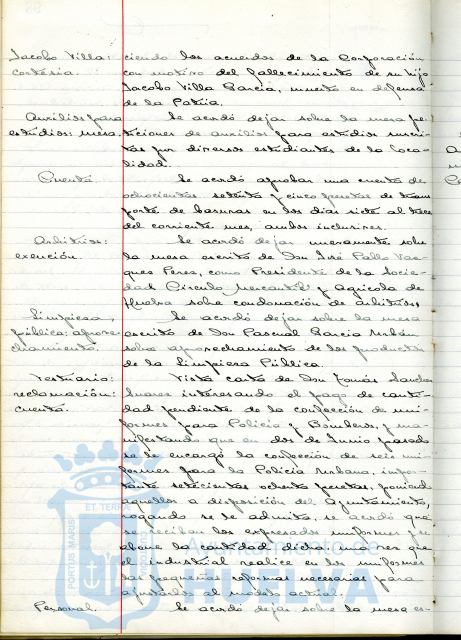 Jacobo Villa: ciendo los acuerdos de la Corporación
cortesia. con motivo del fallecimiento de su hijo
Jacobo Villa Garcia, muerto en defensa
de la Patria.
Auxilios para Se acordó dejar sobre la mesa pe-
estudios: mesa. ticiones de auxilios para estudios suscri-
tas por diversos estudiantes de la Loca-
lidad.
Cuenta Se acordó aprobar una cuenta de
ochocientas setenta y cinco pesetas de trans
porte de basuras en los dias siete al trece
del corriente mes, ambos inclusives.
Arbitrios: Se acordó dejar nuevamente sobre
exención. la mesa escrito de Don José Pablo Vaz-
ques Perea, como Presidente de la Socie-
dad Circulo Mercantil y Agricola de
Huelva sobre condonación de arbitrios.
Limpieza Se acordó dejar sobre la mesa
pública: aprove- escrito de Don Pascual Garcia Urbán
chamiento. sobre aprovechamiento de los productos
de la Limpieza Pública.
Vestuario: Vista carta de Don Tomás Sanchez
reclamación: Suarez interesando el pago de canti-
cuenta. dad pendiente de la confección de uni-
formes para Policia y Bomberos, y ma-
nifestando que en dos de Junio pasado
se le encargó la confección de seis uni-
formes para la Policia Urbana, impor-
tante setecientas ochenta pesetas, poniendo
aquellos a disposición del Ayuntamiento,
rogando se le admita, se acordó que
se reciban los expresados uniformes y se
abone la cantidad dicha una vez que
el industrial realice en los uniformes
las pequeñas reformas necesarias para
ajustarlos al modelo actual.
Personal. Se acordó dejar sobre la mesa es-
PORTUS MARIS
ET TERRÆ
Ayuntamiento de
HUELVA